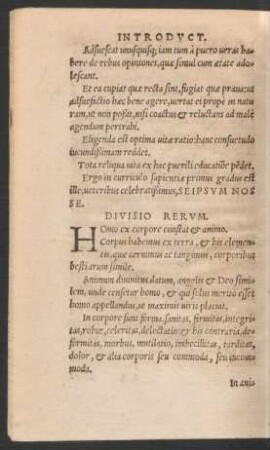 INTRODVCT.
Adsuescat unusquisq; iam tum à puero ueras ha-
bere de rebus opiniones, quæ simul cum ætate ado-
lescant.
Et ea cupiat quæ recta sint, fugiat quæ praua: ut
adsuefactio hæc bene agere, uertat ei propè in natu-
ram, ut non possit, nisi coactus & reluctans ad malè
agendum pertrahi.
Eligenda est optima uitæ ratio: hanc consuetudo
iucundissimam reddet.
Tota reliqua uita ex hac puerili educatiõe pẽdet.
Ergo in curriculo sapientiæ primus gradus est
ille, ueteribus celebratissimus, SEIPSVM NOS
SE.
DIVISIO RERVM.
HOmo ex corpore constat & animo.
Corpus habemus ex terra, & his elemen-
tis, quæ cernimus ac tangimus, corporibus
bestiarum simile.
Animum diuinitus datum, angelis & Deo simi-
lem, unde censetur homo, & qui solus meritò esset
homo appellandus, ut maximis uiris placuit.
In corpore sunt forma, sanitas, firmitas, integri-
tas, robur, celeritas, delectatio: & his contraria, de-
formitas, morbus, mutilatio, imbecillitas, tarditas,
dolor, & alia corporis seu commoda, seu incom-
moda.
In ani-